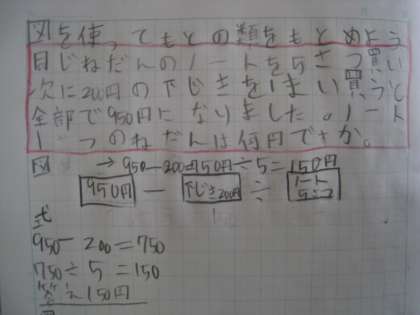 図を使ってもとの類をもとめよう
同じねだんのノートを5さつ買い
次に200円の下じきを1まい買うと
全部で950円になりました。ノート
1さつのねだんは何円ですか。
図 →950-200=150円÷5=150円
950円 ― 下じき200円 ÷ ノート5さつ
式
950-200=750
750÷5=150
答え150円